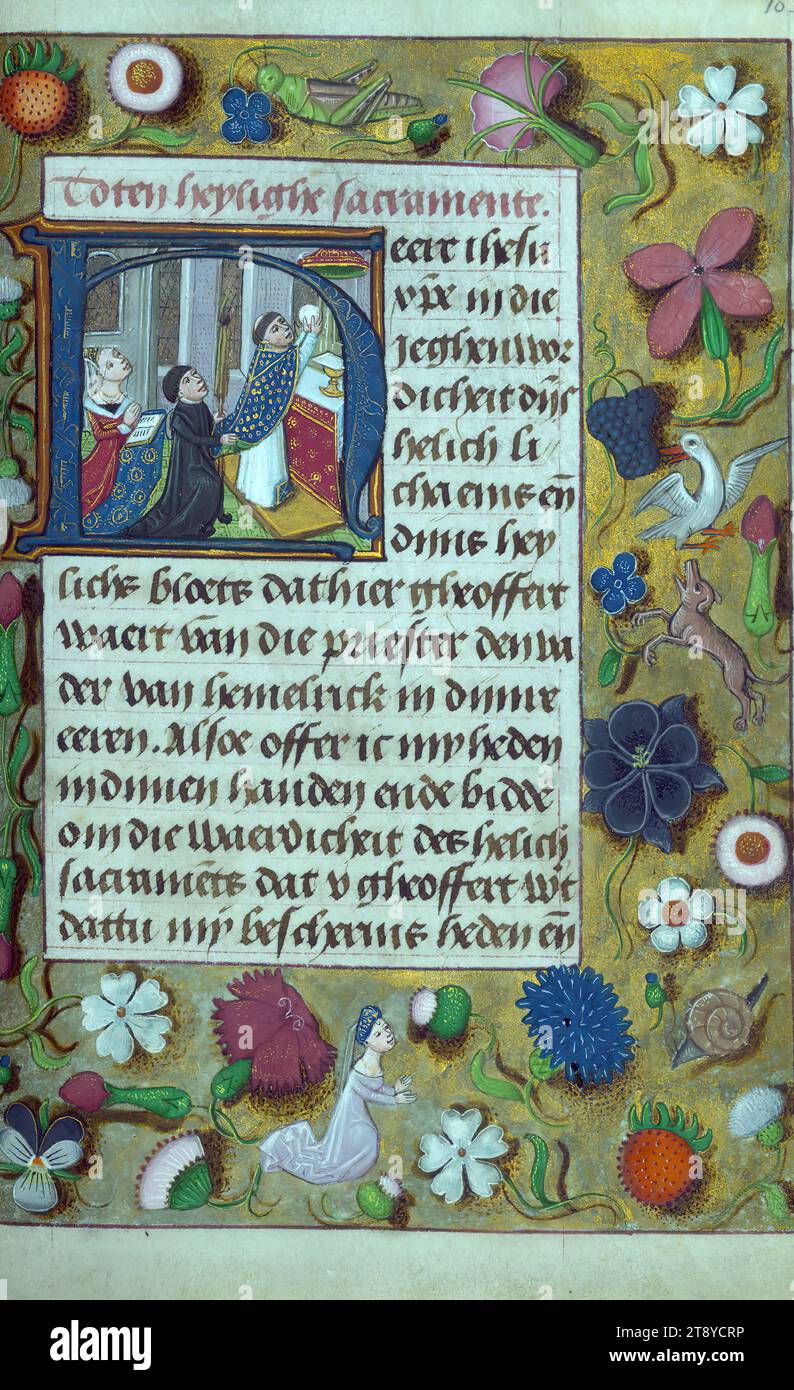 Toten heylighe sacramente.
Heere ihesu
xp̄e in die
jeghenwor
dicheit dijs
helich li
chaems en̄
dijns hey
lichs bloets dat hier gheoffert
waert van die priester den va
der van hemelrick in dijnre
eeren. Alsoe offer ic my heden
in dijnen handen ende bidde
om die waerdicheit des helich
sacramēts dat v gheoffert wt
dattu my bescherms heden en̄
alamy
www.alamy.com
Image ID: 2T8YCRP